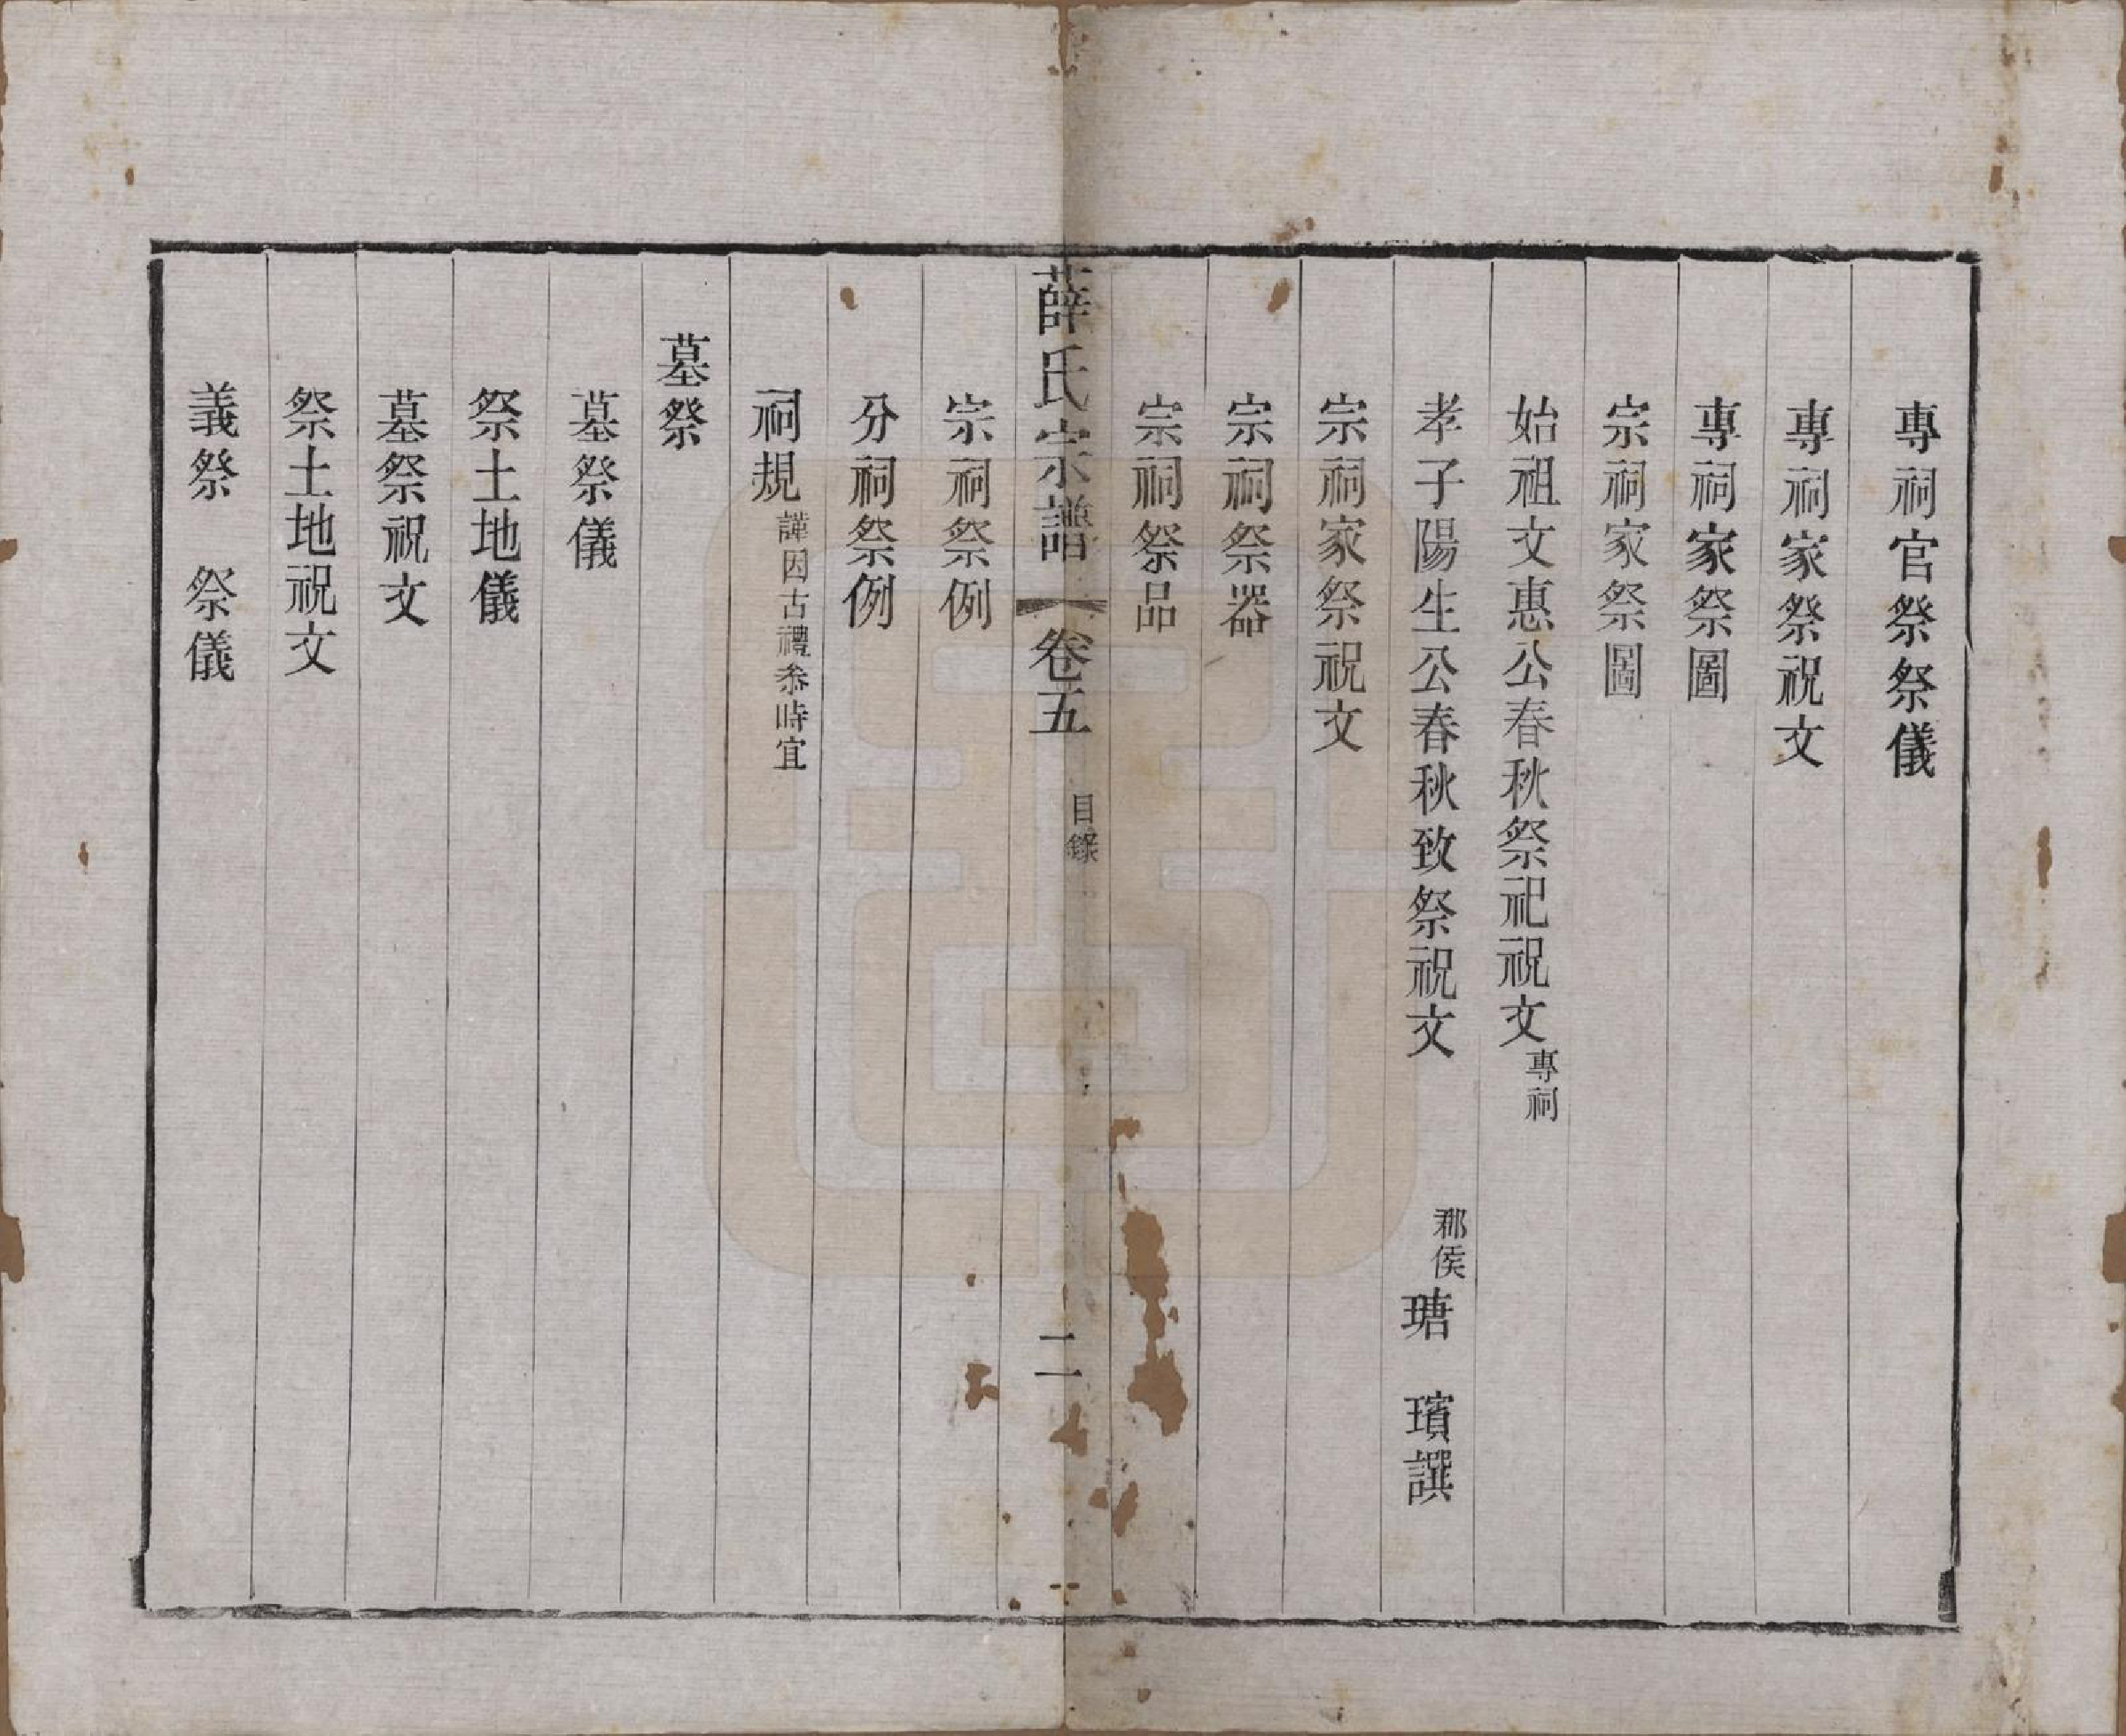 專祠官祭祭儀
專祠家祭祝文
專祠家祭圖
宗祠家祭圖
始祖文惠公春秋祭祀祝文專祠
孝子陽生公春秋致祭祝文 郡侯瑭 璸譔
宗祠家祭祝文
宗祠祭器
宗祠祭品
薛氏宗譜 卷五 目錄 二
宗祠祭例
分祠祭例
祠規謹因古禮叅時宜
墓祭
墓祭儀
祭土地儀
墓祭祝文
祭土地祝文
義祭 祭儀